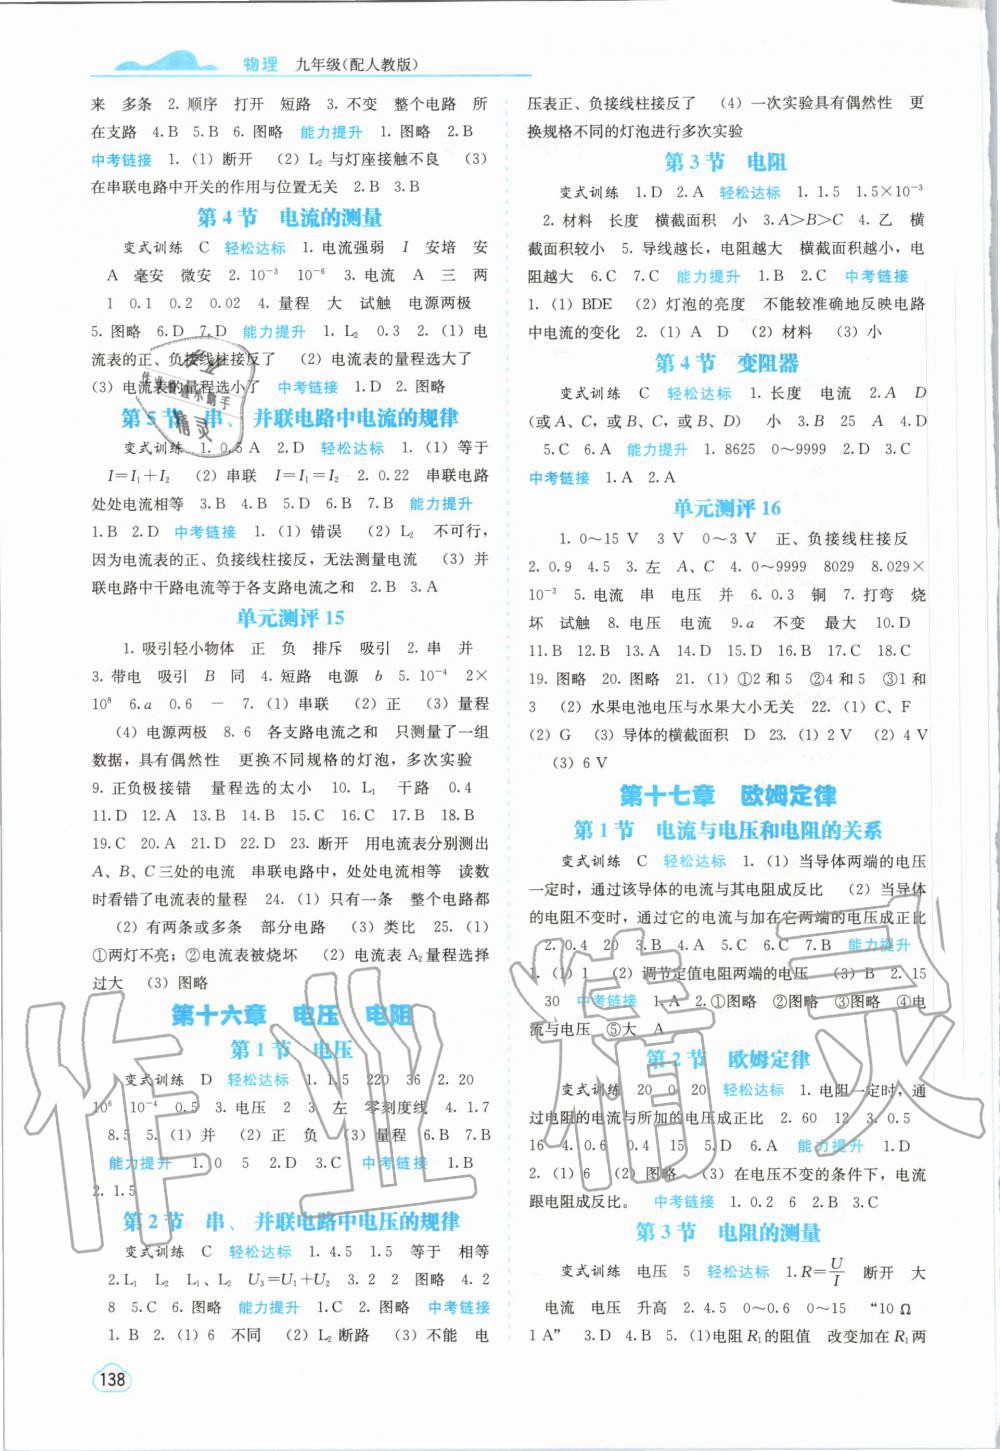 物理 九年级(配人教版)
来 多条 2. 顺序 打开 短路 3. 不变 整个电路 所
在支路 4. B 5. B 6. 图略 能力提升 1. 图略 2. B
中考链接 1. (1) 断开 (2) L₂ 与灯座接触不良 (3)
在串联电路中开关的作用与位置无关 2. B 3. B
第 4 节 电流的测量
变式训练 C 轻松达标 1. 电流强弱 I 安培 安
A 毫安 微安 2. 10⁻³ 10⁻⁶ 3. 电流 A 三 两
1 0.1 0.2 0.02 4. 量程 大 试触 电源两极
5. 图略 6. D 7. D 能力提升 1. L₂ 0.3 2. (1) 电
流表的正、负接线柱接反了 (2) 电流表的量程选大了
(3) 电流表的量程选小了 中考链接 1. D 2. 图略
第 5 节 串、并联电路中电流的规律
变式训练 1. 0.5 A 2. D 轻松达标 1. (1) 等于
I=I₁+I₂ (2) 串联 I=I₁=I₂ 2. 0.22 串联电路
处处电流相等 3. B 4. B 5. D 6. B 7. B 能力提升
1. B 2. D 中考链接 1. (1) 错误 (2) L₂ 不可行,
因为电流表的正、负接线柱接反,无法测量电流 (3) 并
联电路中干路电流等于各支路电流之和 2. B 3. A
单元测评 15
1. 吸引轻小物体 正 负 排斥 吸引 2. 串 并
3. 带电 吸引 B 同 4. 短路 电源 b 5. 10⁻⁴ 2×
10⁸ 6. a 0.6 - 7. (1) 串联 (2) 正 (3) 量程
(4) 电源两极 8. 6 各支路电流之和 只测量了一组
数据,具有偶然性 更换不同规格的灯泡,多次实验
9. 正负极接错 量程选的太小 10. L₁ 干路 0.4
11. D 12. A 13. B 14. B 15. B 16. A 17. C 18. D
19. C 20. A 21. D 22. D 23. 断开 用电流表分别测出
A、B、C 三处的电流 串联电路中,处处电流相等 读数
时看错了电流表的量程 24. (1) 只有一条 整个电路都
(2) 有两条或多条 部分电路 (3) 类比 25. (1)
①两灯不亮;②电流表被烧坏 (2) 电流表 A₂ 量程选择
过大 (3) 图略
第十六章 电压 电阻
第 1 节 电压
变式训练 D 轻松达标 1. 1.5 220 36 2. 20
10⁶ 10⁻⁴ 0.5 3. 电压 2 3 左 零刻度线 4. 1.7
8.5 5. (1) 并 (2) 正 负 (3) 量程 6. B 7. B
能力提升 1. 0 5 2. D 3. C 中考链接 1. B
2. 1.5
第 2 节 串、并联电路中电压的规律
变式训练 C 轻松达标 1. 4.5 1.5 等于 相等
2. L₁ L₂ L₁、L₂ U₃=U₁+U₂ 3. 2 2 图略 4. 2
8 5. C 6. 图略 能力提升 1. C 2. 图略 中考链接
1. B 2. (1) 6 不同 (2) L₂ 断路 (3) 不能 电
138
压表正、负接线柱接反了 (4) 一次实验具有偶然性 更
换规格不同的灯泡进行多次实验
第 3 节 电阻
变式训练 1. D 2. A 轻松达标 1. 1.5 1.5×10⁻³
2. 材料 长度 横截面积 小 3. A>B>C 4. 乙 横
截面积较小 5. 导线越长,电阻越大 横截面积越小,电
阻越大 6. C 7. C 能力提升 1. B 2. C 中考链接
1. (1) BDE (2) 灯泡的亮度 不能较准确地反映电路
中电流的变化 2. (1) A D (2) 材料 (3) 小
第 4 节 变阻器
变式训练 C 轻松达标 1. 长度 电流 2. A D
(或 A、C,或 B、C,或 B、D) 小 3. B 25 A 4. D
5. C 6. A 能力提升 1. 8625 0~9999 2. D 3. C
中考链接 1. A 2. A
单元测评 16
1. 0~15 V 3 V 0~3 V 正、负接线柱接反
2. 0.9 4.5 3. 左 A、C 4. 0~9999 8029 8.029×
10⁻³ 5. 电流 串 电压 并 6. 0.3 铜 7. 打弯 烧
坏 试触 8. 电压 电流 9. a 不变 最大 10. D
11. B 12. B 13. A 14. D 15. D 16. B 17. C 18. C
19. 图略 20. 图略 21. (1) ①2和5 ②4和5 ③1和
3 (2) 水果电池电压与水果大小无关 22. (1) C、F
(2) G (3) 导体的横截面积 D 23. (1) 2 V (2) 4 V
(3) 6 V
第十七章 欧姆定律
第 1 节 电流与电压和电阻的关系
变式训练 C 轻松达标 1. (1) 当导体两端的电压
一定时,通过该导体的电流与其电阻成反比 (2) 当导体
的电阻不变时,通过它的电流与加在它两端的电压成正比
2. 0.4 20 3. B 4. C 5. C 6. C 7. B 能力提升
1. (1) 1 (2) 调节定值电阻两端的电压 (3) B 2. 15
30 中考链接 1. A 2. ①图略 ②图略 ③图略 ④电
流与电压 ⑤大 A
第 2 节 欧姆定律
变式训练 20 0 20 轻松达标 1. 电阻一定时,通
过电阻的电流与所加的电压成正比 2. 60 12 3. 0.5
16 4. 0.6 0.4 15 5. D 6. A 能力提升 1. D
2. (1) 6 (2) 图略 (3) 在电压不变的条件下,电流
跟电阻成反比。 中考链接 1. 0.2 6 2. B 3. C
第 3 节 电阻的测量
变式训练 电压 5 轻松达标 1. R=U/I 断开 大
电流 电压 升高 2. 4.5 0~0.6 0~15 “10 Ω
1 A” 3. D 4. B 5. (1)电阻 R₁ 的阻值 改变加在 R₁ 两
作业精灵